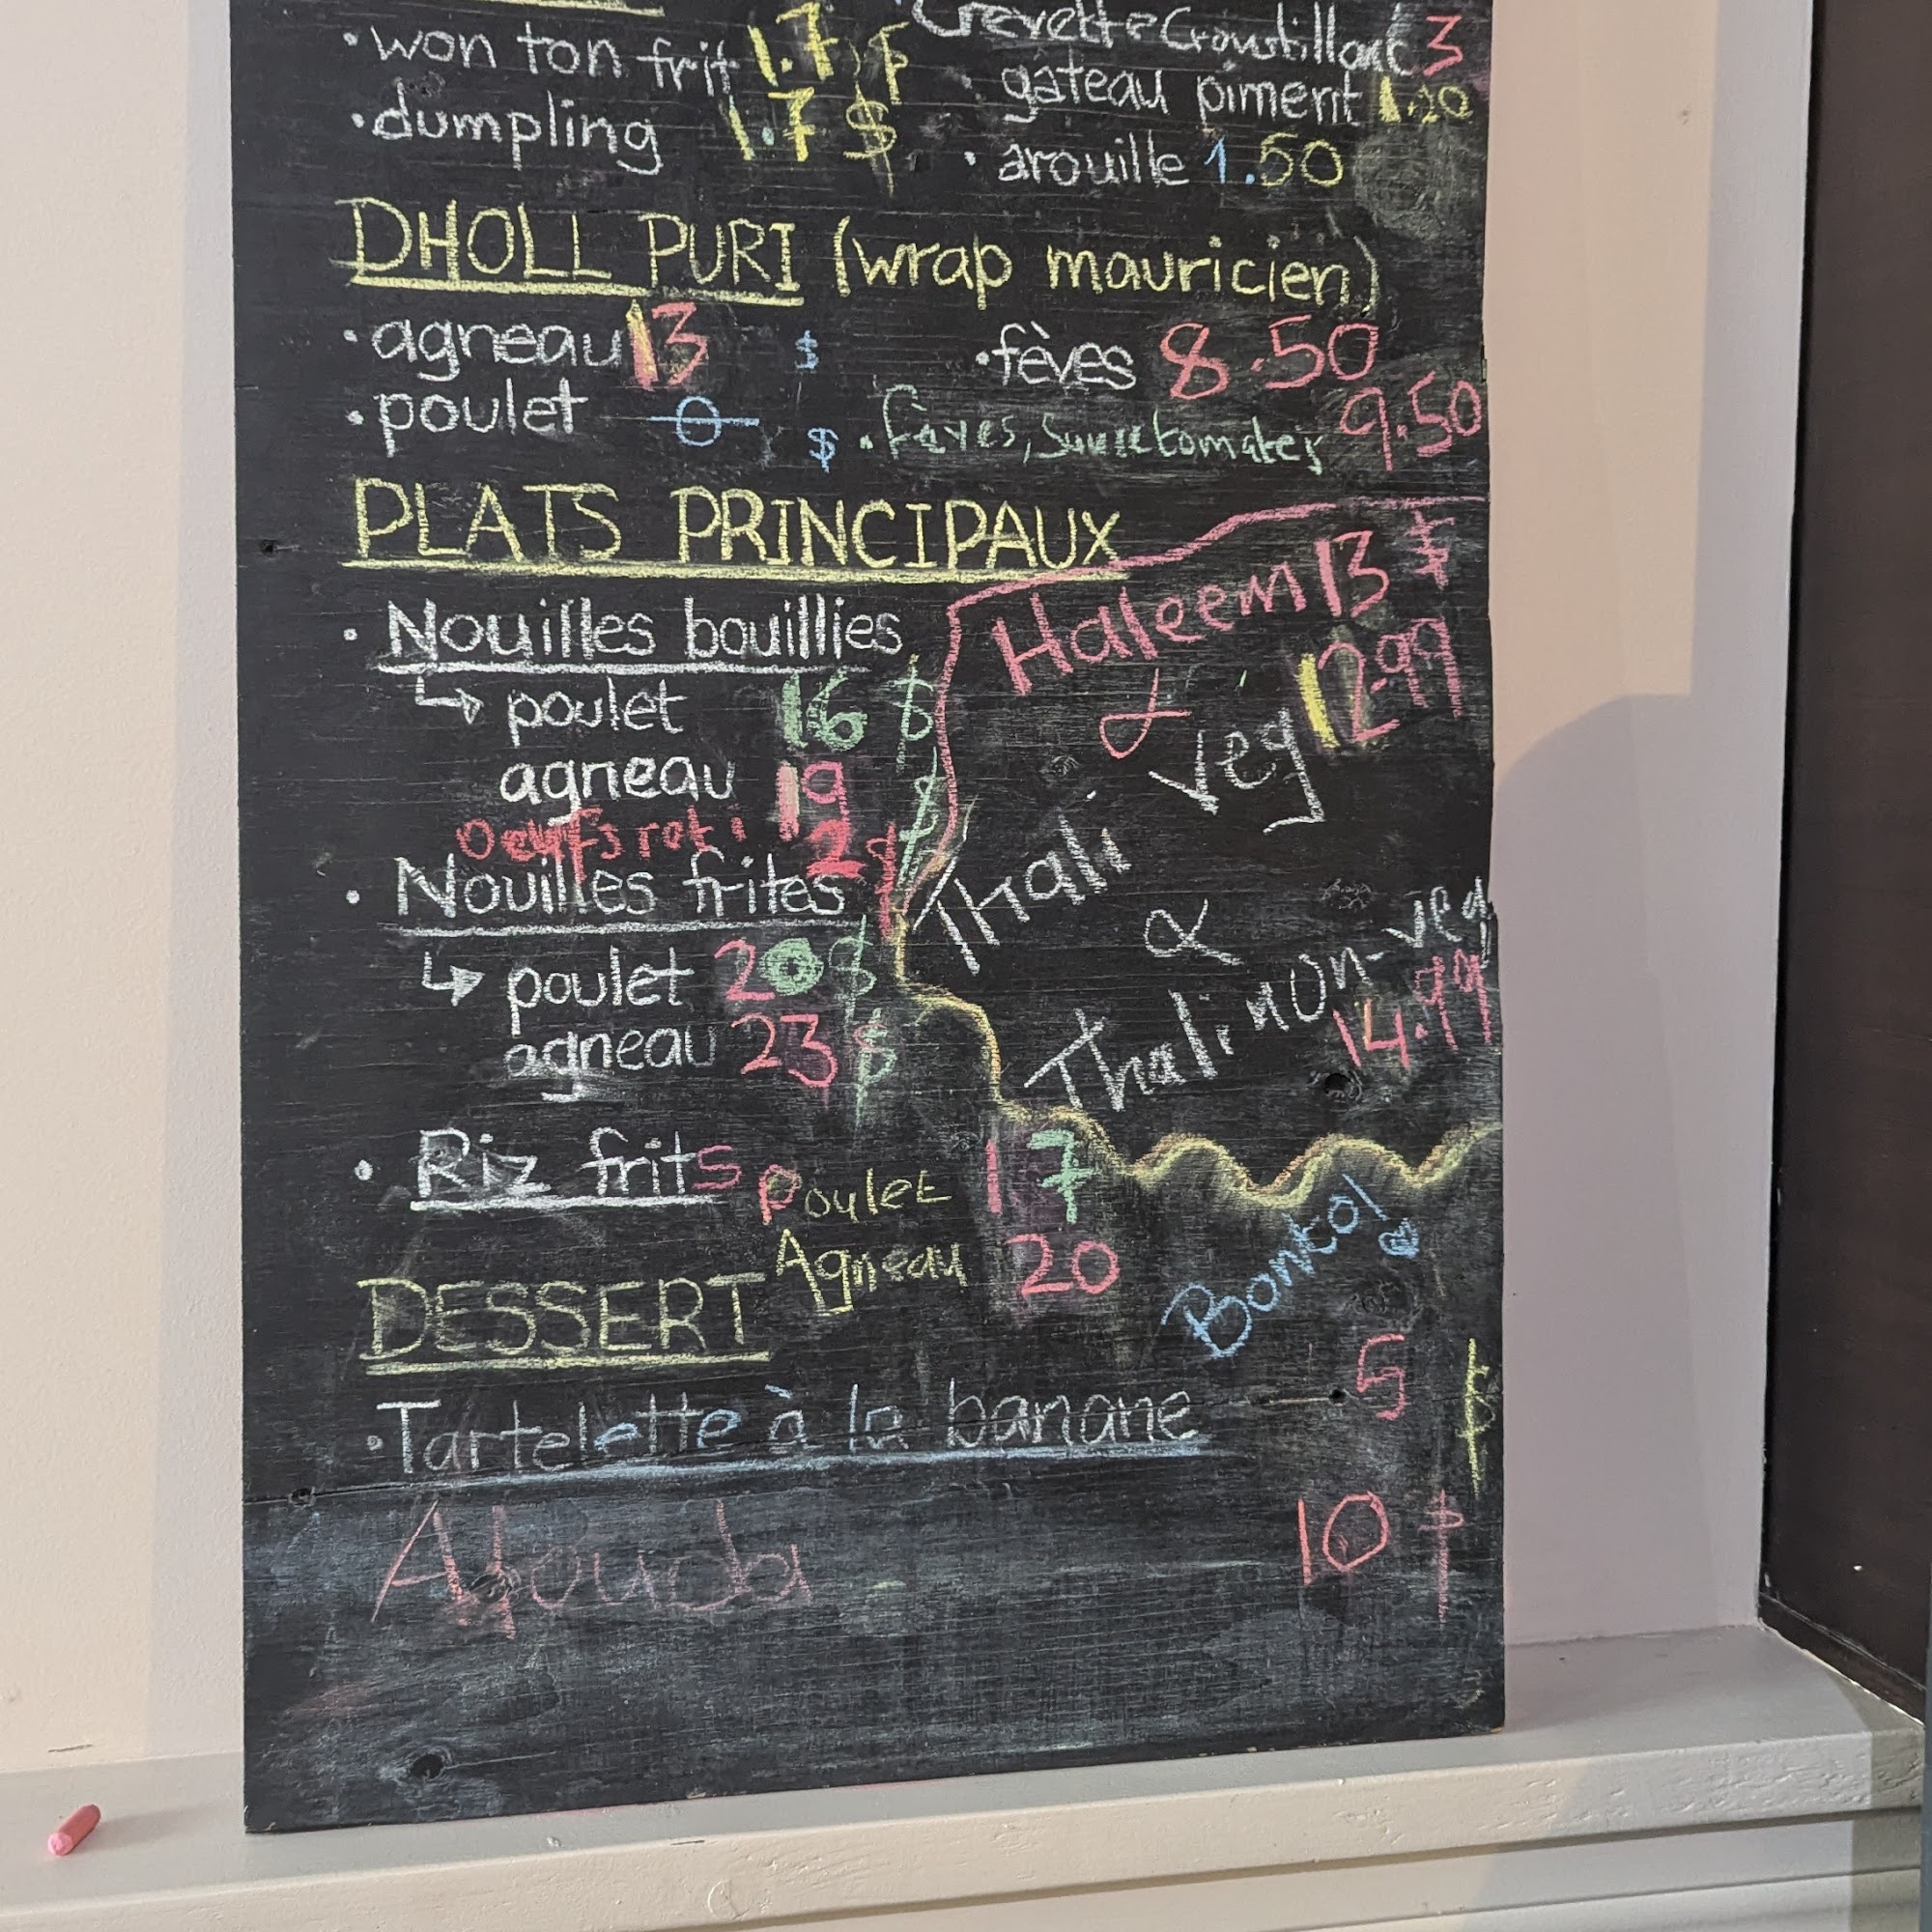 • won ton frit 1.7 $
• dumpling 1.7 $
Crevette Croustillant 3
• gâteau piment 1.20
• arouille 1.50
DHOLL PURI (wrap mauricien)
• agneau 13 $
• poulet $
• fèves 8.50
• fèves, tomates 9.50
PLATS PRINCIPAUX
• Nouilles bouillies
↳ poulet 16 $
agneau 19 $
Oeufs roti 2 $
• Nouilles frites
↳ poulet 20 $
agneau 23 $
Haleem 13 $
&
Thali Veg 12.99
&
Thali non-veg
14.99
• Riz frits Poulet 17
Agneau 20
DESSERT
• Tartelette à la banane 5 $
10 $